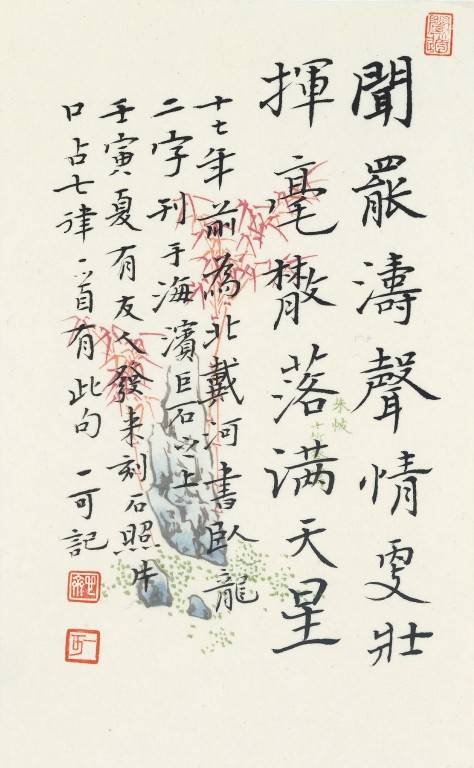 聞罷濤聲情更壯
揮毫散落满天星
十七年前為北戴河書臥龍
二字刊于海濱巨石之上
壬寅夏有友人發来刻石照片
口占七律一首有此句 一可記
一可